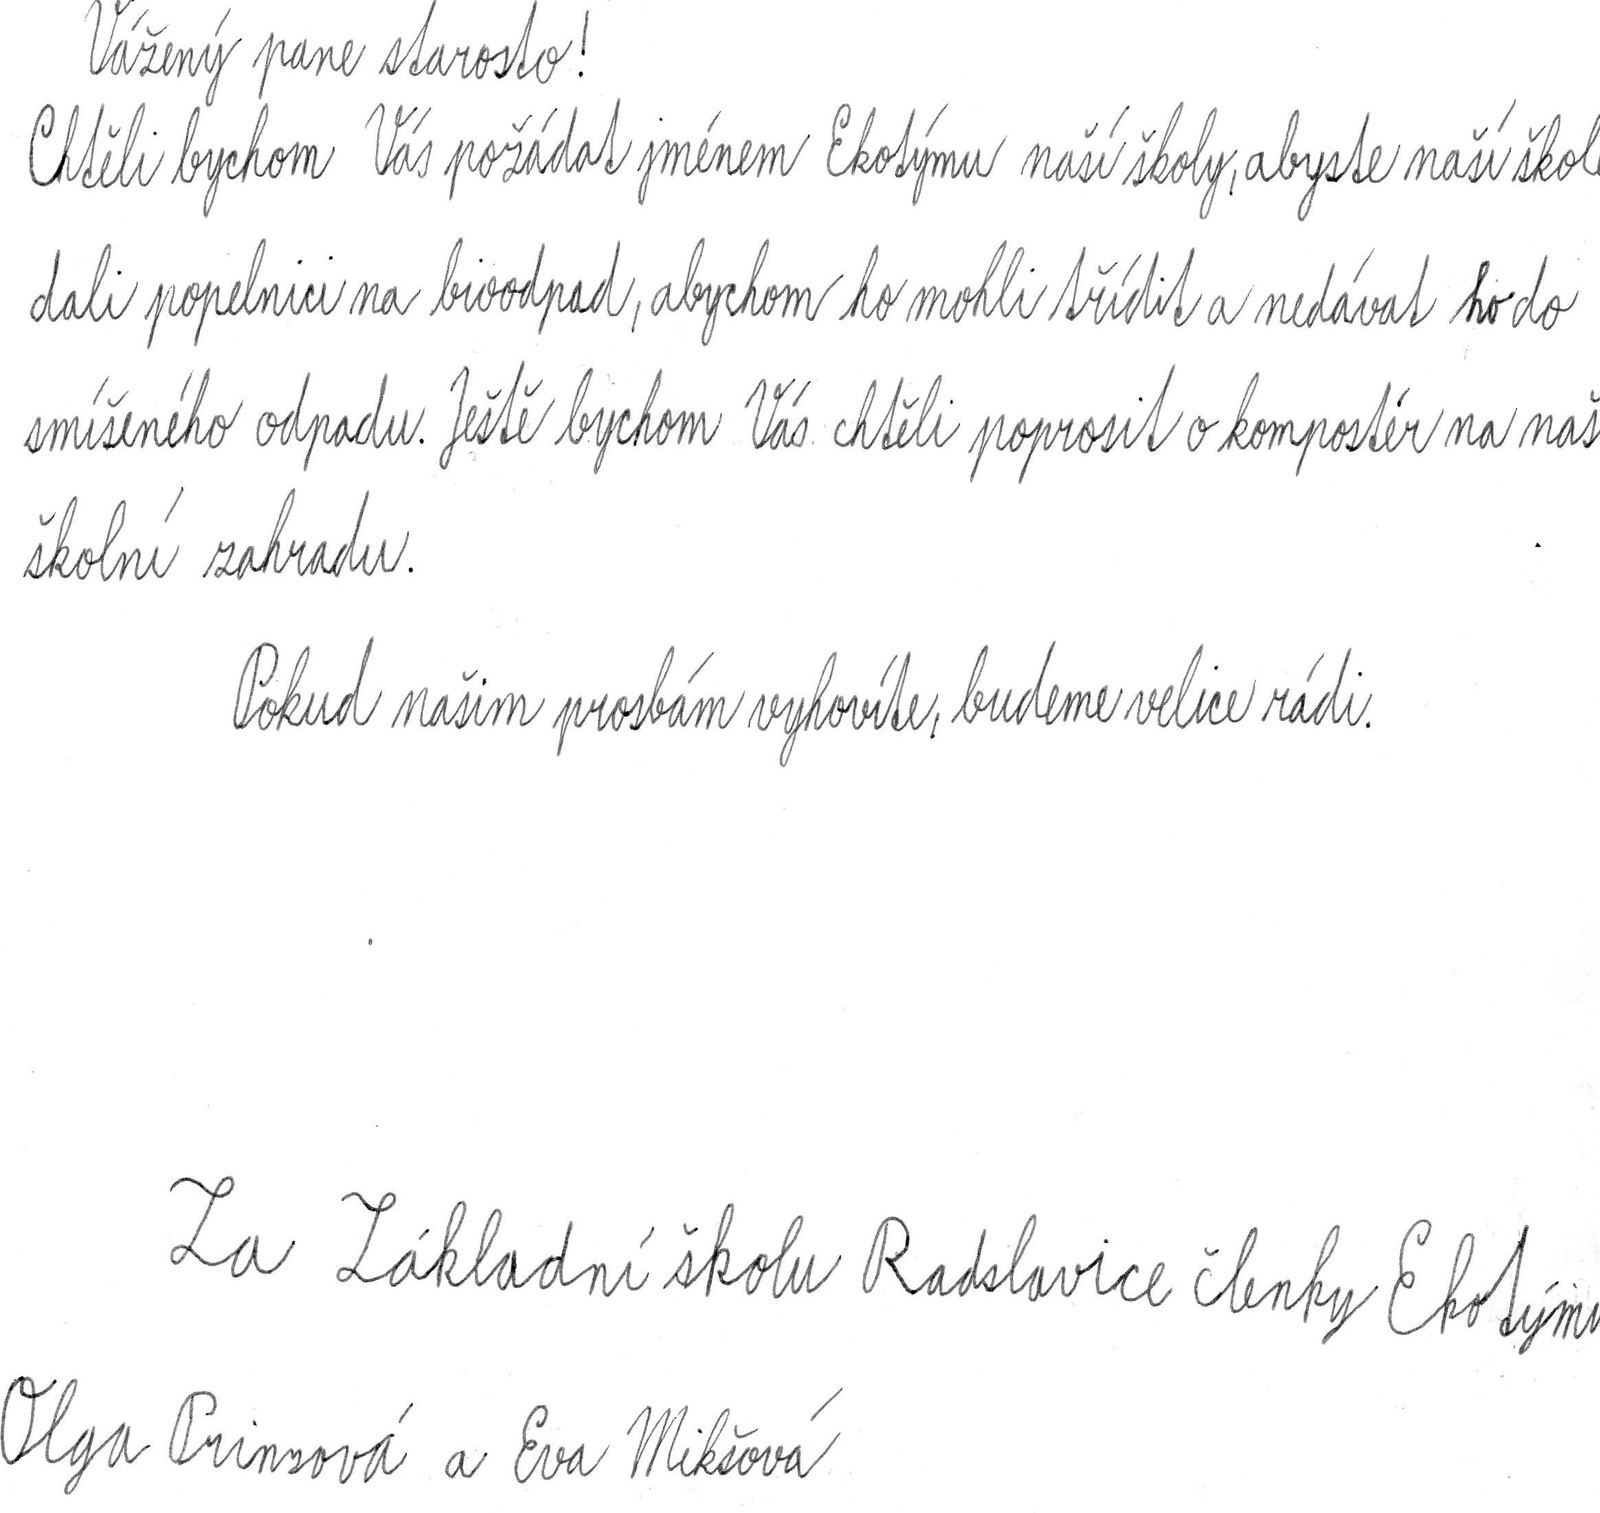 Vážený pane starosto!
Chtěli bychom Vás požádat jménem Ekotýmu naší školy, abyste naší škole
dali popelnici na bioodpad, abychom ho mohli třídit a nedávat ho do
smíšeného odpadu. Ještě bychom Vás chtěli poprosit o kompostér na naš
školní zahradu.
Pokud našim prosbám vyhovíte, budeme velice rádi.
Za Základní školu Radslavice členky Ekotýmu
Olga Prinzová a Eva Mikšová